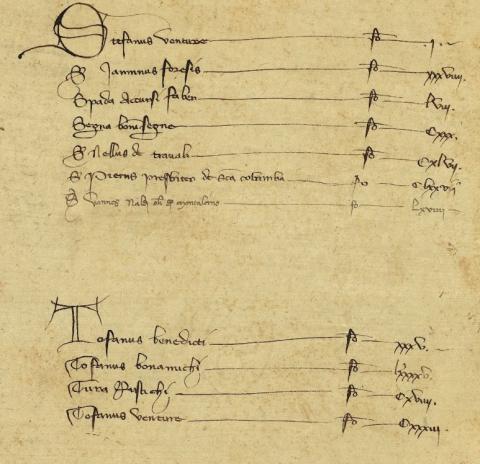 Stefanus venture fo .j.
S Janninus foresis fo xxxviiij.
Spada Accursi fabri fo lviij.
Segna bonisegne fo cxxx.
S Nellus de travali fo cxlvij.
S Pietrus presbiter de sca columba fo clxxvij
S Vannes Naldi de montalcino fo lxviiij
Tofanus benedicti fo xxxv.
Tofanus bonamichi fo lxxxxv.
Tura Rustichi fo cxviij.
Tofanus venture fo cxxxiij.